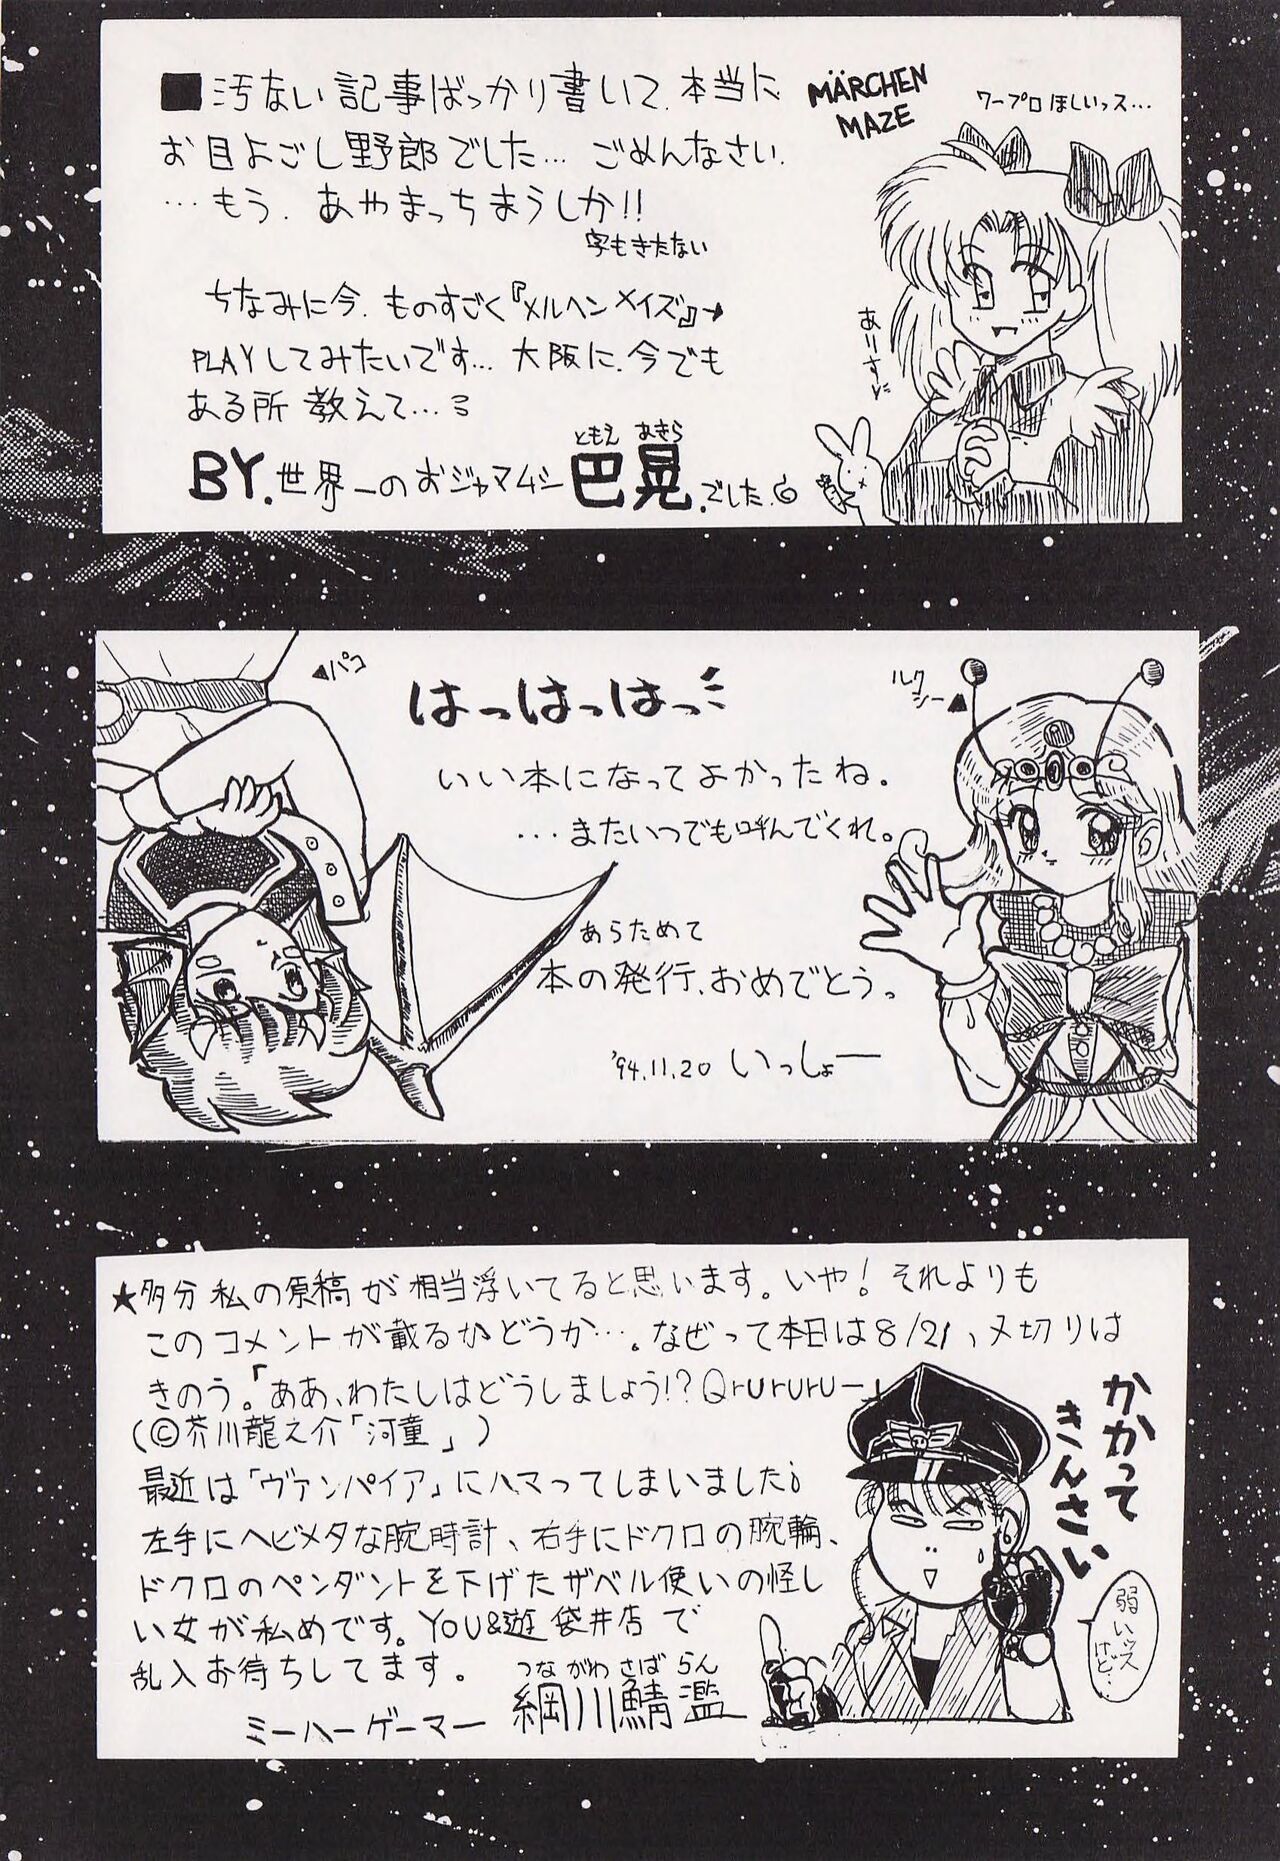 ■汚ない記事ばっかり書いて、本当に
お目よごし野郎でした… ごめんなさい.
…もう. あやまっちまうしか!!
字もきたない
MÄRCHEN
MAZE
ワープロほしいっス…
ちなみに今. ものすごく『メルヘンメイズ』→
PLAYしてみたいです… 大阪に.今でも
ある所 教えて…
ありす
BY.世界一のおジャマムシ 巴晃.でした.
ともえ あきら
◀パコ
はっはっはっ
ルクシー▲
いい本になってよかったね。
…またいつでも呼んでくれ。
あらためて
本の発行、おめでとう。
'94.11.20 いっしょー
★多分 私の原稿が相当浮いてると思います。いや!それよりも
このコメントが載るかどうか…。なぜって本日は8/21、〆切りは
きのう。「ああ、わたしはどうしましょう!?Qrururu―」
(©芥川龍之介「河童」)
最近は「ヴァンパイア」にハマってしまいました
左手にヘビメタな腕時計、右手にドクロの腕輪、
ドクロのペンダントを下げたザベル使いの怪し
い女が私めです。YOU&遊 袋井店で
乱入お待ちしてます。
ミーハーゲーマー 綱川鯖濫
つながわさばらん
かかって
きんさい
弱いッス
けど…